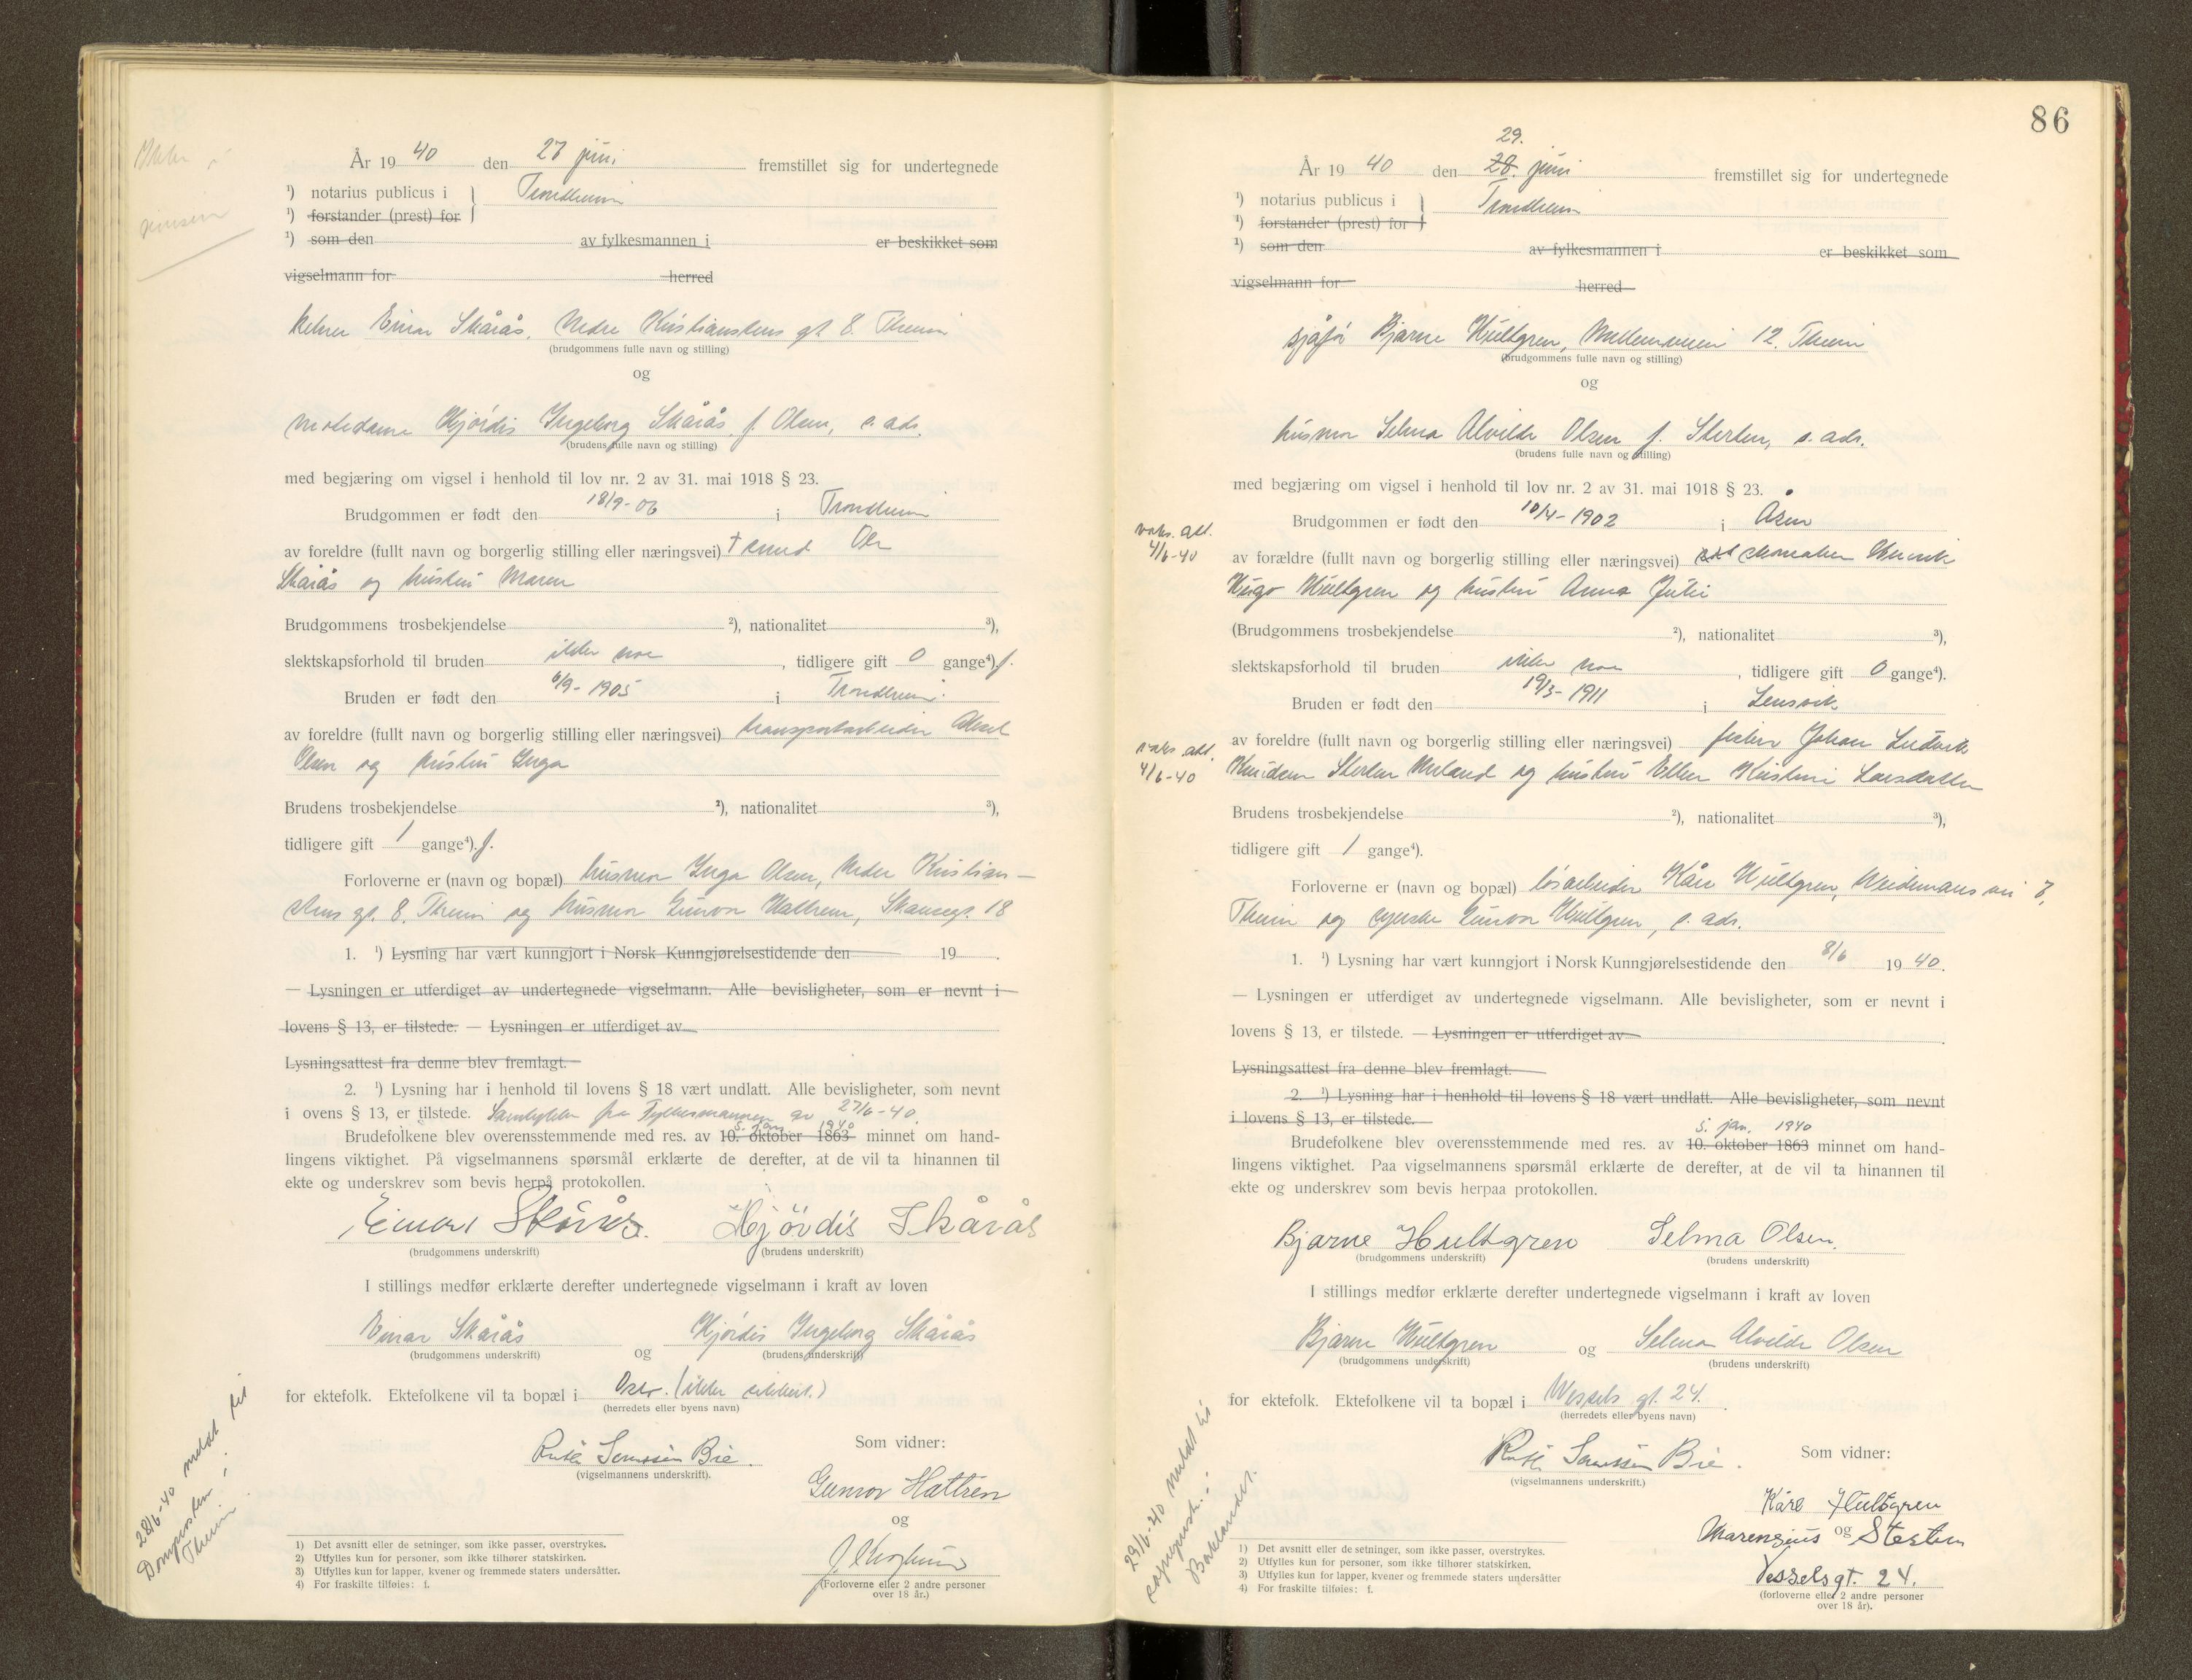 År 19 40 den 27 juni fremstillet sig for undertegnede
¹) notarius publicus i } Trondheim
¹) forstander (prest) for
¹) som den av fylkesmannen i er beskikket som
vigselmann for herred
kelner Einar Skårås, Nedre Kristianstens gt 8 Theim
(brudgommens fulle navn og stilling)
og
motedame Hjördis Ingeborg Skårås f Olsen, s. ads.
(brudens fulle navn og stilling)
med begjæring om vigsel i henhold til lov nr. 2 av 31. mai 1918 § 23.
Brudgommen er født den 18/9-06 i Trondheim
av foreldre (fullt navn og borgerlig stilling eller næringsvei) † Ole
Skårås og hustru Maren
Brudgommens trosbekjendelse ²), nationalitet ³),
slektskapsforhold til bruden ikke noe, tidligere gift 0 gange⁴) f.
Bruden er født den 6/9-1905 i Trondheim.
av foreldre (fullt navn og borgerlig stilling eller næringsvei) transportarbeider Aksel
Olsen og hustru Inga
Brudens trosbekjendelse ²), nationalitet ³),
tidligere gift 1 gange⁴). f.
Forloverne er (navn og bopæl) husmor Inga Olsen, Nedre Kristian-
stens gt. 8, Theim og husmor Gunvor Hattrem, Skansegt. 18
1. ¹) Lysning har vært kunngjort i Norsk Kunngjørelsestidende den 19 .
— Lysningen er utferdiget av undertegnede vigselmann. Alle bevisligheter, som er nevnt i
lovens § 13, er tilstede. — Lysningen er utferdiget av
Lysningsattest fra denne blev fremlagt.
2. ¹) Lysning har i henhold til lovens § 18 vært undlatt. Alle bevisligheter, som nevnt
i ovens § 13, er tilstede. Samtykke fra Fylkesmannen av 27/6-40.
5. jan. 1940
Brudefolkene blev overensstemmende med res. av 10. oktober 1863 minnet om hand-
lingens viktighet. På vigselmannens spørsmål erklærte de derefter, at de vil ta hinannen til
ekte og underskrev som bevis herpå protokollen.
Einar Skårås. Hjördis Skårås
(brudgommens underskrift) (brudens underskrift)
I stillings medfør erklærte derefter undertegnede vigselmann i kraft av loven
Einar Skårås og Hjördis Ingeborg Skårås
(brudgommens underskrift) (brudens underskrift)
for ektefolk. Ektefolkene vil ta bopæl i Oslo. (ikke sikkert.)
(herredets eller byens navn)
Ruth Sørenssen Bie.
(vigselmannens underskrift).
Som vidner:
Gunvor Hattrem
og
(Forloverne eller 2 andre personer
over 18 år.)
28/6-40 meldt til
Domprosten i
Theim.
1) Det avsnitt eller de setninger, som ikke passer, overstrykes.
2) Utfylles kun for personer, som ikke tilhører statskirken.
3) Utfylles kun for lapper, kvener og fremmede staters undersåtter.
4) For fraskilte tilføies: f.
86
29.
År 19 40 den 28. juni fremstillet sig for undertegnede
¹) notarius publicus i } Trondheim
¹) forstander (prest) for
¹) som den av fylkesmannen i er beskikket som
vigselmann for herred
sjåfør Bjarne Hultgren, 12. Theim
(brudgommens fulle navn og stilling)
og
husmor Selma Alvilde Olsen f. Sterten, s. ads.
(brudens fulle navn og stilling)
med begjæring om vigsel i henhold til lov nr. 2 av 31. mai 1918 § 23.
Brudgommen er født den 10/4-1902 i Åsen
vaks. att.
4/6-40
av forældre (fullt navn og borgerlig stilling eller næringsvei) skomaker Henrik
Hugo Hultgren og hustru Anna Julie
(Brudgommens trosbekjendelse ²), nationalitet ³),
slektskapsforhold til bruden ikke noe, tidligere gift 0 gange⁴).
Bruden er født den 19/3-1911 i Lensvik
vaks. att.
4/6-40
av foreldre (fullt navn og borgerlig stilling eller næringsvei) fisker Johan Ludvik
Knudsen Sterten og hustru Ellen Kristine Larsdatter
Brudens trosbekjendelse ²), nationalitet ³),
tidligere gift 1 gange⁴).
Forloverne er (navn og bopæl) løsarbeider Kåre Hultgren, Weidemans vei 3,
Theim og syerske Gunvor Hultgren, s. ads.
1. ¹) Lysning har vært kunngjort i Norsk Kunngjørelsestidende den 8/6 19 40.
— Lysningen er utferdiget av undertegnede vigselmann. Alle bevisligheter, som er nevnt i
lovens § 13, er tilstede. — Lysningen er utferdiget av .
Lysningsattest fra denne blev fremlagt.
2. ¹) Lysning har i henhold til lovens § 18 vært undlatt. Alle bevisligheter, som nevnt
i lovens § 13, er tilstede.
5. jan. 1940
Brudefolkene blev overensstemmende med res. av 10. oktober 1863 minnet om hand-
lingens viktighet. Paa vigselmannens spørsmål erklærte de derefter, at de vil ta hinannen til
ekte og underskrev som bevis herpaa protokollen.
Bjarne Hultgren Selma Olsen.
(brudgommens underskrift) (brudens underskrift)
I stillings medfør erklærte derefter undertegnede vigselmann i kraft av loven
Bjarne Hultgren og Selma Alvilde Olsen
(brudgommens underskrift) (brudens underskrift)
for ektefolk. Ektefolkene vil ta bopæl i Wessels gt. 24.
(herredets eller byens navn)
Ruth Sørenssen Bie.
(vigselmannens underskrift.)
Som vidner:
Kåre Hultgren
og
Marengius Sterten
Vesselsgt. 24.
(forloverne eller 2 andre personer
over 18 år).
29/6-40 meldt til
sogneprest. i
Baklandet.
1) Det avsnitt eller de setninger, som ikke passer, overstrykes.
2) Utfylles kun for personer, som ikke tilhører statskirken.
3) Utfylles kun for lapper, kvener og fremmede staters undersåtter
4) For fraskilte tilføies: f.